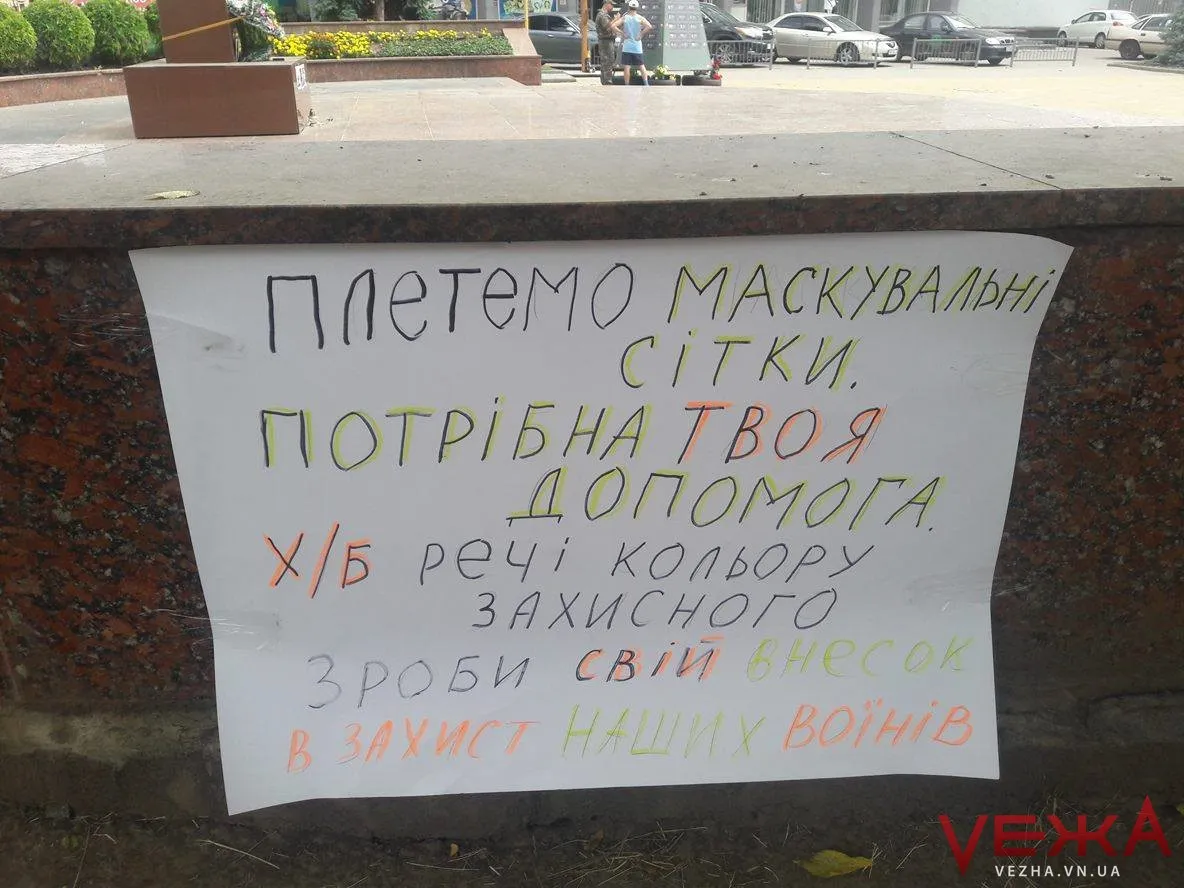 ПЛЕТЕМО МАСКУВАЛЬНІ
СІТКИ.
ПОТРІБНА ТВОЯ
ДОПОМОГА.
Х/Б РЕЧІ КОЛЬОРУ
ЗАХИСНОГО
ЗРОБИ СВІЙ ВНЕСОК
В ЗАХИСТ НАШИХ ВОЇНІВ
VEЖА
VEZHA.VN.UA